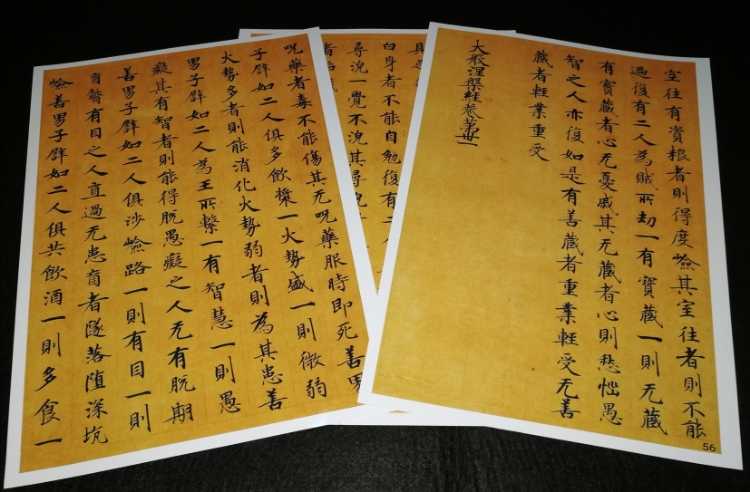 空往有資粮者則得度嶮其空往者則不能
過復有二人為賊所劫一有寶藏一則无藏
有寶藏者心无憂戚其无藏者心則愁惱愚
智之人亦復如是有善藏者重業軽受无善
藏者軽業重受
大般涅槃経卷第卅一
56
白身者不能自勉復有二人
呪藥者毒不能傷其无呪藥服時即死善男
子辟如二人俱多飲漿一火勢盛一則微弱
火勢多者則能消化火勢弱者則為其患善
男子辟如二人為王所繫一有智慧一則愚
癡其有智者則能得脫愚癡之人无有脫期
善男子辟如二人俱涉嶮路一則有目一則
盲瞽有目之人直過无患盲者墜落堕深坑
嶮善男子辟如二人俱共飲酒一則多食一